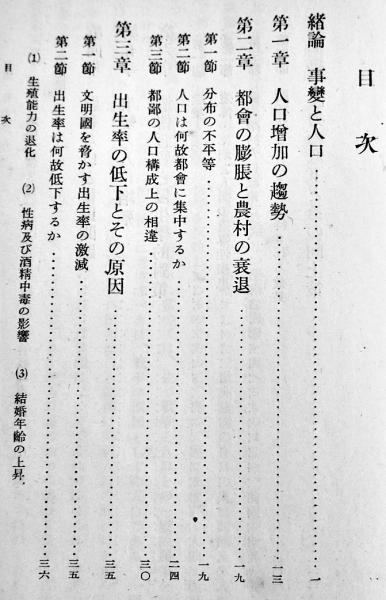 目次
緒論 事變と人口……………一
第一章 人口增加の趨勢……………一三
第二章 都會の膨脹と農村の衰退……………一九
第一節 分布の不平等……………一九
第二節 人口は何故都會に集中するか……………二四
第三節 都鄙の人口構成上の相違……………三〇
第三章 出生率の低下とその原因……………三五
第一節 文明國を脅かす出生率の激減……………三五
第二節 出生率は何故低下するか……………三六
(1) 生殖能力の退化 (2) 性病及び酒精中毒の影響 (3) 結婚年齡の上昇
目次